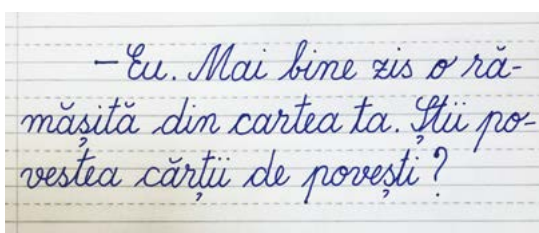 –Eu. Mai bine zis o ră-
mășită din cartea ta. Știi po-
vestea cărții de povești?